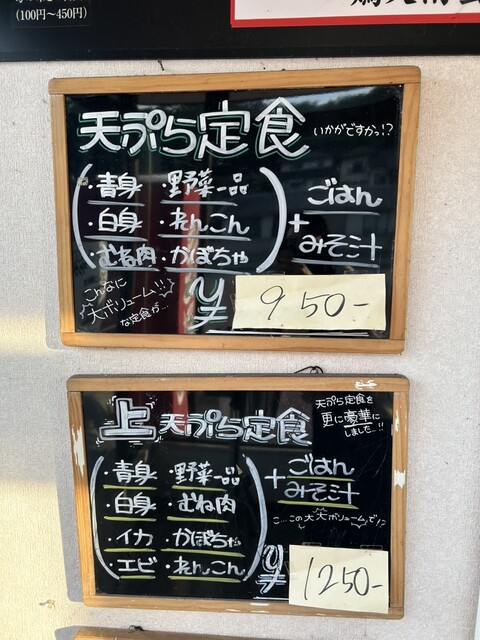 (100円〜450円)
天ぷら定食 いかがですかっ!?
・青身 ・野菜一品
・白身 ・れんこん
・むね肉 ・かぼちゃ
+
ごはん
みそ汁
こんなに
大ボリューム!!
な定食が…
¥ 950-
上 天ぷら定食
天ぷら定食を
更に豪華に
しました…!!
・青身 ・野菜一品
・白身 ・むね肉
・イカ ・かぼちゃ
・エビ ・れんこん
+
ごはん
みそ汁
こ…この大大ボリュームで!?
¥ 1250-